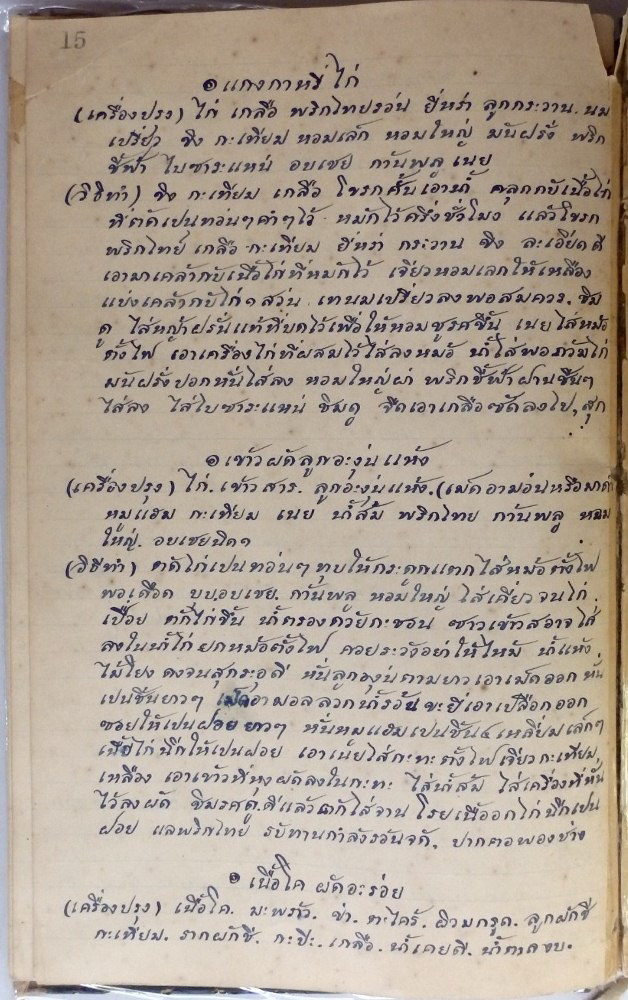 15
๑ แกงกาหรี่ ไก่
(เครื่องปรุง) ไก่ เกลือ พริกไทยปรอ่น ยี่หร่า ลูกกระวาน. นม
เปรี้ยว ขิง กะเทียม หอมเล็ก หอมใหญ่ มันฝรั่ง พริก
ชี้ฟ้า ใบซาระแหน่ อบเชย กานพลู เนย
(วิธีทำ) ขิง กะเทียม เกลือ โขรกคั้นเอาน้ำ คลุกกับเนื้อไก่
ที่ตัดเปนทอ่นๆคำๆไว้ หมักไว้ครึ่งชั่วโมง แล้วโขรก
พริกไทย เกลือ กะเทียม ยี่หร่า กระวาน ขิง ละเอียดดี
เอามาเคล้ากับเนื้อไก่ที่หมักไว้ เจียวหอมเลกให้เหลือง
แบ่งเคล้ากับไก่ ๑ สว่น เทนมเปรี้ยวลงพอสมควร. ชิม
ดู ไส่หญ้าฝรั่นแท้ที่บดไว้เพื่อให้หอมชูรศขึ้น เนยไส่หม้อ
ตั้งไฟ เอาเครื่องไก่ที่ผสมไว้ไส่ลงหม้อ น้ำไส่พอภวมไก่
มันฝรั่งปอกหั่นไส่ลง หอมใหญ่ผ่า พริกชี้ฟ้าฝานชิ้นๆ
ไส่ลง ไส่ใบซาระแหน่ ชิมดู จืดเอาเกลือซัดลงไป, สุก
๑ เข้าวผัดลูกอะงุ่นแห้ง
(เครื่องปรุง) ไก่. เข้าวสาร. ลูกอะงุ่นแห้ง. (เม็ดอามอ่นหรือ
หมูแฮม กะเทียม เนย น้ำส้ม พริกไทย กานพลู หอม
ใหญ่. อบเชยนิด ๑
(วิธีทำ) ตัดไก่เปนทอ่นๆ ทุบให้กระดูกแตก ไส่หม้อตั้งไฟ
พอเดือด บุบอบเชย. กานพลู หอมใหญ่ ไส่เคี่ยวจนไก่.
เปื่อย ตักไก่ขึ้น น้ำตรองด้วยกะชอน ซาวเข้าวสอาจไส่
ลงในน้ำไก่ ยกหม้อตั้งไฟ คอยระวังอย่าให้ไหม้ น้ำแห้ง.
ไม้โยง ดงจนสุกระอุดี หั่นลูกอะงุ่นตามยาวเอาเม็ดออก หั่น
เปนชิ้นยาวๆ เม็ดอามอลลวกน้ำร้อน ขะยี่เอาเปลือกออก
ซอยให้เปนฝอย ยาวๆ หั่นหมูแฮมเปนชิ้น ๔ เหลี่ยมเล็กๆ
เนื้อไก่ฉีกให้เปนฝอย เอาเนยไส่กะทะตั้งไฟเจียวกะเทียม.
เหลือง เอาเข้าวที่หุงผัดลงในกะทะ ไส่น้ำส้ม ไส่เครื่องที่หั่น
ไว้ลงผัด ชิมรศดู.ดีแล้วตักไส่จาน โรยเนื้ออกไก่ฉีกเปน
ฝอย แลพริกไทย รับทานกำลังรอ้นจัด. ปากตอพองช่าง
๑ เนื้อโค ผัดอะร่อย
(เครื่องปรุง) เนื้อโค. มะพร้าว. ข่า. ตะไคร้. ผิวมกรูด. ลูกผักชี
กะเทียม. รากผักชี. กะปิ. เกลือ. น้ำเคยดี. น้ำตาล